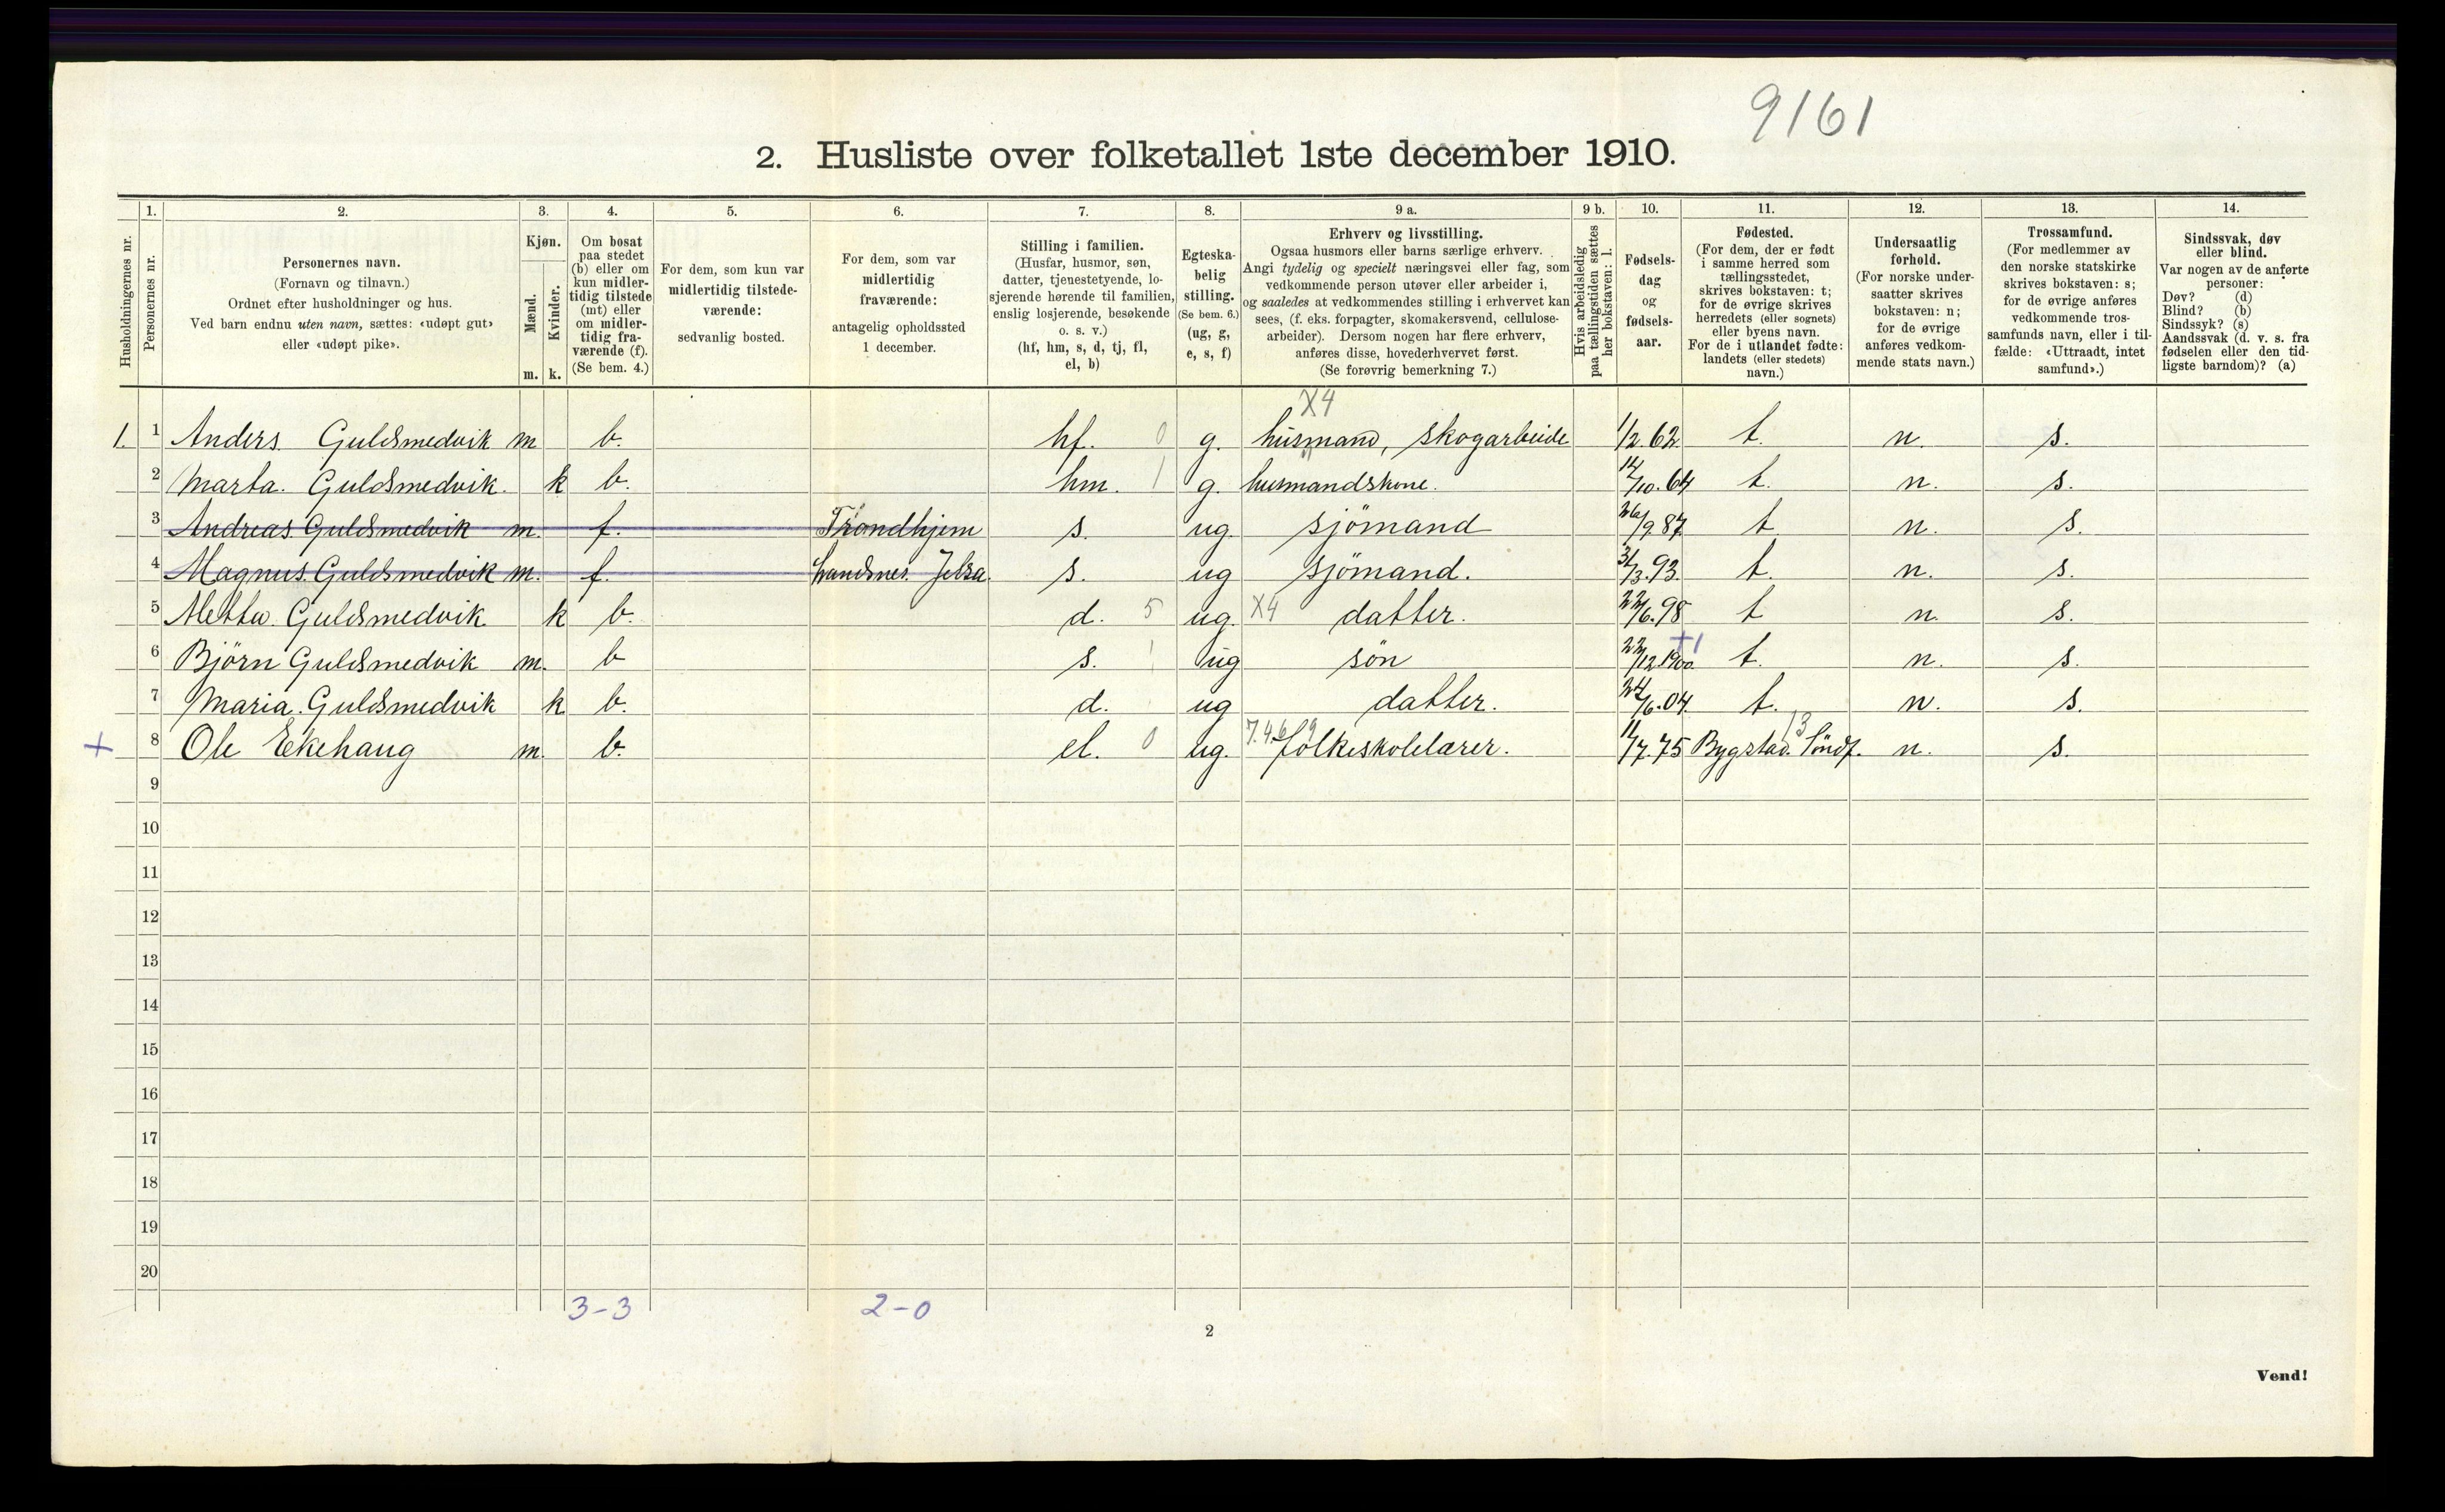 9161
2. Husliste over folketallet 1ste december 1910.
Husholdningernes nr.
1. 2. 3. 4. 5. 6. 7. 8. 9 a. 9 b. 10. 11. 12. 13. 14.
Personernes nr.
Personernes navn.
(Fornavn og tilnavn.)
Ordnet efter husholdninger og hus.
Ved barn endnu uten navn, sættes: «udøpt gut»
eller «udøpt pike».
Kjøn.
Mænd.
Kvinder.
m. k.
Om bosat
paa stedet
(b) eller om
kun midler-
tidig tilstede
(mt) eller
om midler-
tidig fra-
værende (f).
(Se bem. 4.)
For dem, som kun var
midlertidig tilstede-
værende:
sedvanlig bosted.
For dem, som var
midlertidig
fraværende:
antagelig opholdssted
1 december.
Stilling i familien.
(Husfar, husmor, søn,
datter, tjenestetyende, lo-
sjerende hørende til familien,
enslig losjerende, besøkende
o. s. v.)
(hf, hm, s, d, tj, fl,
el, b)
Egteska-
belig
stilling.
(Se bem. 6.)
(ug, g,
e, s, f)
Erhverv og livsstilling.
Ogsaa husmors eller barns særlige erhverv.
Angi tydelig og specielt næringsvei eller fag, som
vedkommende person utøver eller arbeider i,
og saaledes at vedkommendes stilling i erhvervet kan
sees, (f. eks. forpagter, skomakersvend, cellulose-
arbeider). Dersom nogen har flere erhverv,
anføres disse, hovederhvervet først.
(Se forøvrig bemerkning 7.)
Hvis arbeidsledig
paa tællingstiden sættes
her bokstaven: l.
Fødsels-
dag
og
fødsels-
aar.
Fødested.
(For dem, der er født
i samme herred som
tællingsstedet,
skrives bokstaven: t;
for de øvrige skrives
herredets (eller sognets)
eller byens navn.
For de i utlandet fødte:
landets (eller stedets)
navn.)
Undersaatlig
forhold.
(For norske under-
saatter skrives
bokstaven: n;
for de øvrige
anføres vedkom-
mende stats navn.)
Trossamfund.
(For medlemmer av
den norske statskirke
skrives bokstaven: s;
for de øvrige anføres
vedkommende tros-
samfunds navn, eller i til-
fælde: «Uttraadt, intet
samfund».)
Sindssvak, døv
eller blind.
Var nogen av de anførte
personer:
Døv? (d)
Blind? (b)
Sindssyk? (s)
Aandssvak (d. v. s. fra
fødselen eller den tid-
ligste barndom)? (a)
X4
1. 1 Anders Guldsmedvik m b. hf. 0 g. husmand, skogarbeide 1/2.62. t. n. s.
2 Marta. Guldsmedvik. k b. hm. 1 g. husmandskone. 14/10.64 t. n. s.
3 Andreas Guldsmedvik m. f. Trondhjem s. ug. sjömand 26/9 87. t n. s.
4 Magnus. Guldsmedvik m. f. Jelsa. s. ug sjömand. 31/3.93. t. n. s.
5 Guldsmedvik k b. d. 5 ug. X4 datter. 22/6.98 t n. s.
+1
6 Björn Guldsmedvik m. b s. 1 ug sön 22/12 1900. t. n. s.
7 Maria. Guldsmedvik k b. d. ug datter. 24/6.04. t. n. s.
13
+ 8 Ole Eikehaug m. b. el. 0 ug. 7.4.6.9 folkeskolelærer. 11/7.75 Bygstad. Söndf. n. s.
9
10
11
12
13
14
15
16
17
18
19
20
3-3 2-0
2
Vend!